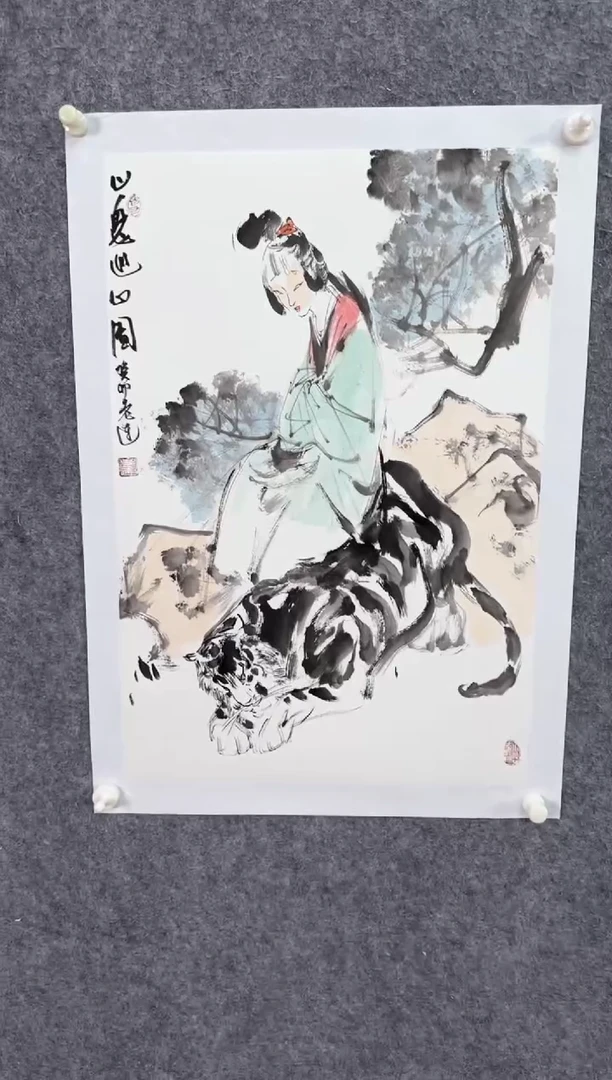 山鬼巡山图
癸卯老道